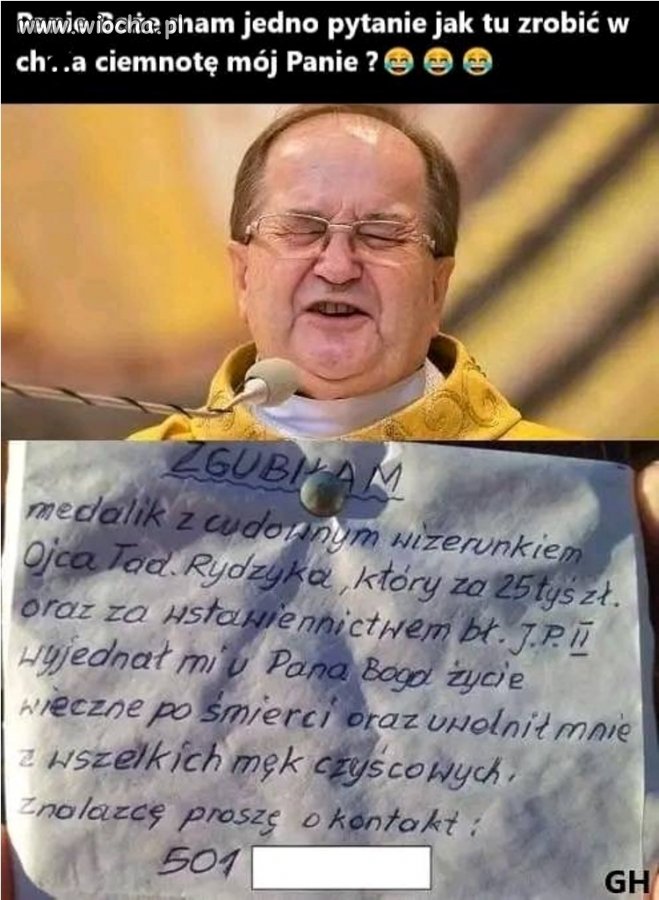 www.wiocha.pl
Panie Boże mam jedno pytanie jak tu zrobić w
ch. .a ciemnotę mój Panie ? 😂 😂 😂
ZGUBIŁAM
medalik z cudownym wizerunkiem
Ojca Tad. Rydzyka, który za 25 tyś zł.
oraz za wstawiennictwem bł. J.P. II
wyjednał mi u Pana Boga życie
wieczne po śmierci oraz uwolnił mnie
z wszelkich męk czyścowych.
Znalazcę proszę o kontakt :
501
GH